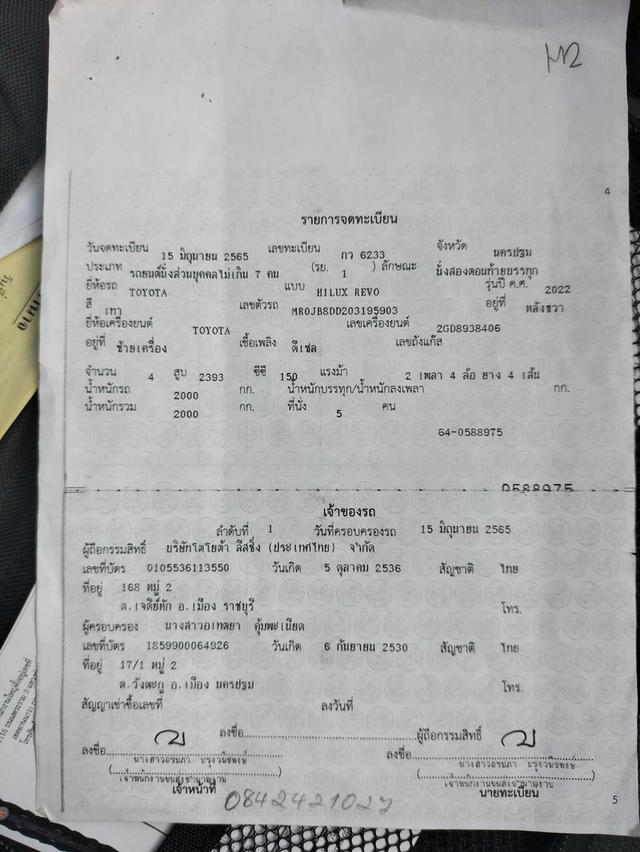 4
รายการจดทะเบียน
วันจดทะเบียน 15 มิถุนายน 2565 เลขทะเบียน กว 6233 จังหวัด นครปฐม
ประเภท รถยนต์นั่งส่วนบุคคลไม่เกิน 7 คน (รย. 1 ) ลักษณะ นั่งสองตอนท้ายบรรทุก
ยี่ห้อรถ TOYOTA แบบ HILUX REVO รุ่นปี ค.ศ. 2022
สี เทา เลขตัวรถ MR0JB8DD203195903 อยู่ที่ หลังขวา
ยี่ห้อเครื่องยนต์ TOYOTA เลขเครื่องยนต์ 2GD8938406
อยู่ที่ ซ้ายเครื่อง เชื้อเพลิง ดีเซล เลขถังแก๊ส
จำนวน 4 สูบ 2393 ซีซี 150 แรงม้า 2 เพลา 4 ล้อ ยาง 4 เส้น
น้ำหนักรถ 2000 กก. น้ำหนักบรรทุก/น้ำหนักลงเพลา กก.
น้ำหนักรวม 2000 กก. ที่นั่ง 5 คน
64-0588975
0588975
เจ้าของรถ
ลำดับที่ 1 วันที่ครอบครองรถ 15 มิถุนายน 2565
ผู้ถือกรรมสิทธิ์ บริษัทโตโยต้า ลีสซิ่ง (ประเทศไทย) จำกัด
เลขที่บัตร 0105536113550 วันเกิด 5 ตุลาคม 2536 สัญชาติ ไทย
ที่อยู่ 168 หมู่ 2
ต.เจดีย์หัก อ.เมือง ราชบุรี โทร.
ผู้ครอบครอง นางสาวอเทตยา คุ้มพะเนียด
เลขที่บัตร 1859900064926 วันเกิด 6 กันยายน 2530 สัญชาติ ไทย
ที่อยู่ 17/1 หมู่ 2
ต.วังตะกู อ.เมือง นครปฐม โทร.
สัญญาเช่าซื้อเลขที่ ลงวันที่
ลงชื่อ ผู้ถือกรรมสิทธิ์
ลงชื่อ ลงชื่อ
เจ้าหน้าที่ นายทะเบียน
0842421027
5